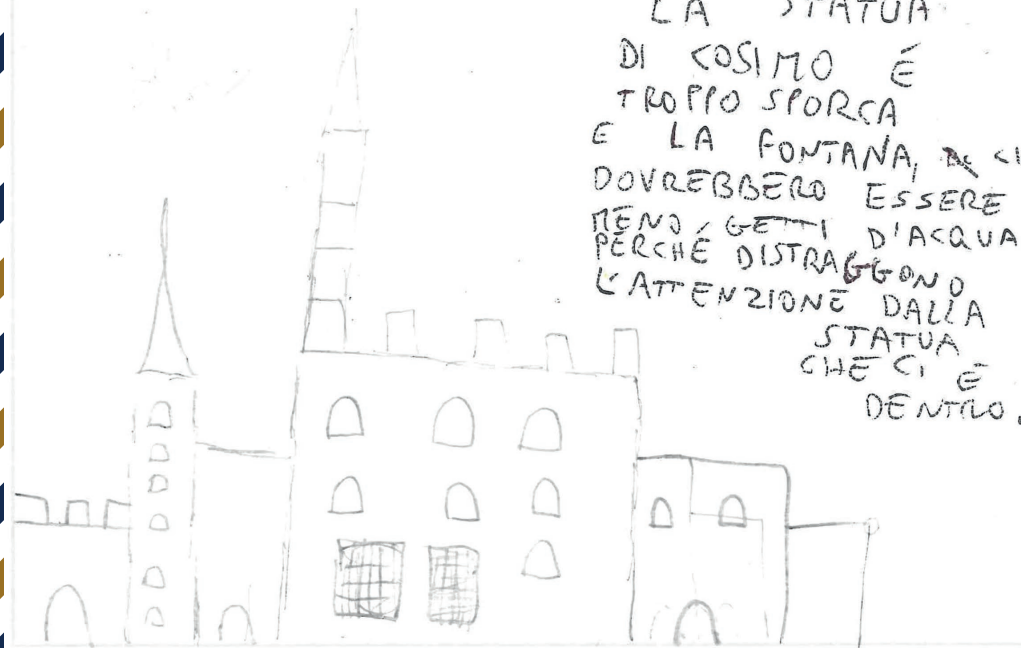 LA STATUA
DI COSIMO É
TROPPO SPORCA
E LA FONTANA, CI
DOVREBBERO ESSERE
MENO GETTI D'ACQUA
PERCHÉ DISTRAGGONO
L'ATTENZIONE DALLA
STATUA
CHE CI É
DENTRO.